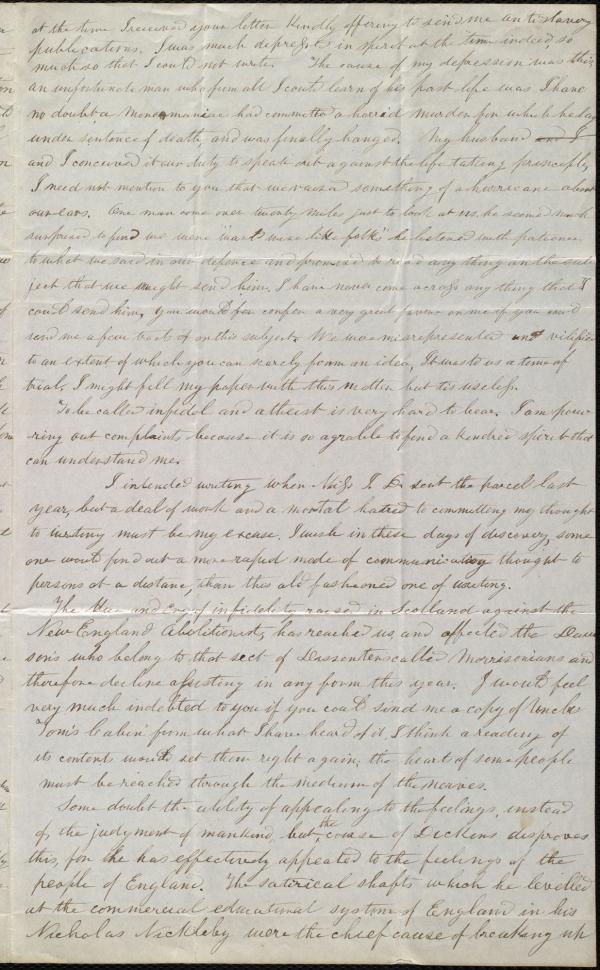 at the time I received your letter kindly offering to send me antislavery
publications. I was much depressed in spirit at the time indeed so
much so that I could not write. The cause of my depression was this,
an unfortunate man who from all I could learn of his past life was I have
no doubt a Monomaniac had committed a horrid murder for which he lay
under sentence of death, and was finally hanged. My husband and I
and I conceived it our duty to speak out against the life taking principle,
I need not mention to you that we raised something of a hurricane about
our ears. One man come over twenty miles just to look at us, he seemed much
surprised to find we were "just like folk" he listened with patience
to what we said in our defence and promised to read any thing on the sub
ject that we might send him. I have never come across any thing that I
could send him, you would confer a very great favour on me if you would
send me a few tracts on this subject. We was misrepresented and vilified
to an extent of which you can scarely form an idea, It was to us a time of
trial, I might fill my paper with this matter but tis useless.
To be called infidel and atheist is very hard to bear. I am pour
ring out complaints because it is so agrable to find a kindred spirit that
can understand me.
I intended writing when Miss I. D. sent the parcel last
year, but a deal of work and a mortal hatred to committing my thought
to writing must be my excuse. I wish in these days of discovery, some
one would find out a more rapid mode of communicating thought to
persons at a distance, than this old fashioned one of writing.
The Hue and cry of infidelity raised in Scotland against the
New England Abolitionists, has reached us, and affected the Daw
sons who belong to that sect of Dissenters called Morrisonians and
therefore decline assisting in any form this year. I would feel
very much indebted to you if you could send me a copy of Uncle
Tom's Cabin' from what I have heard of it, I think a reading of
its contents would set them right again; the heart of some people
must be reached through the medium of the nerves.
Some doubt the utility of appealing to the feelings, instead
of the judgment of mankind, but, the course of Dickens disproves
this, for he has effectively appealed to the feelings of the
people of England. The satirical shafts which he levelled
at the commercial educational system of England in his
Nicholas Nickleby were the chief cause of breaking up